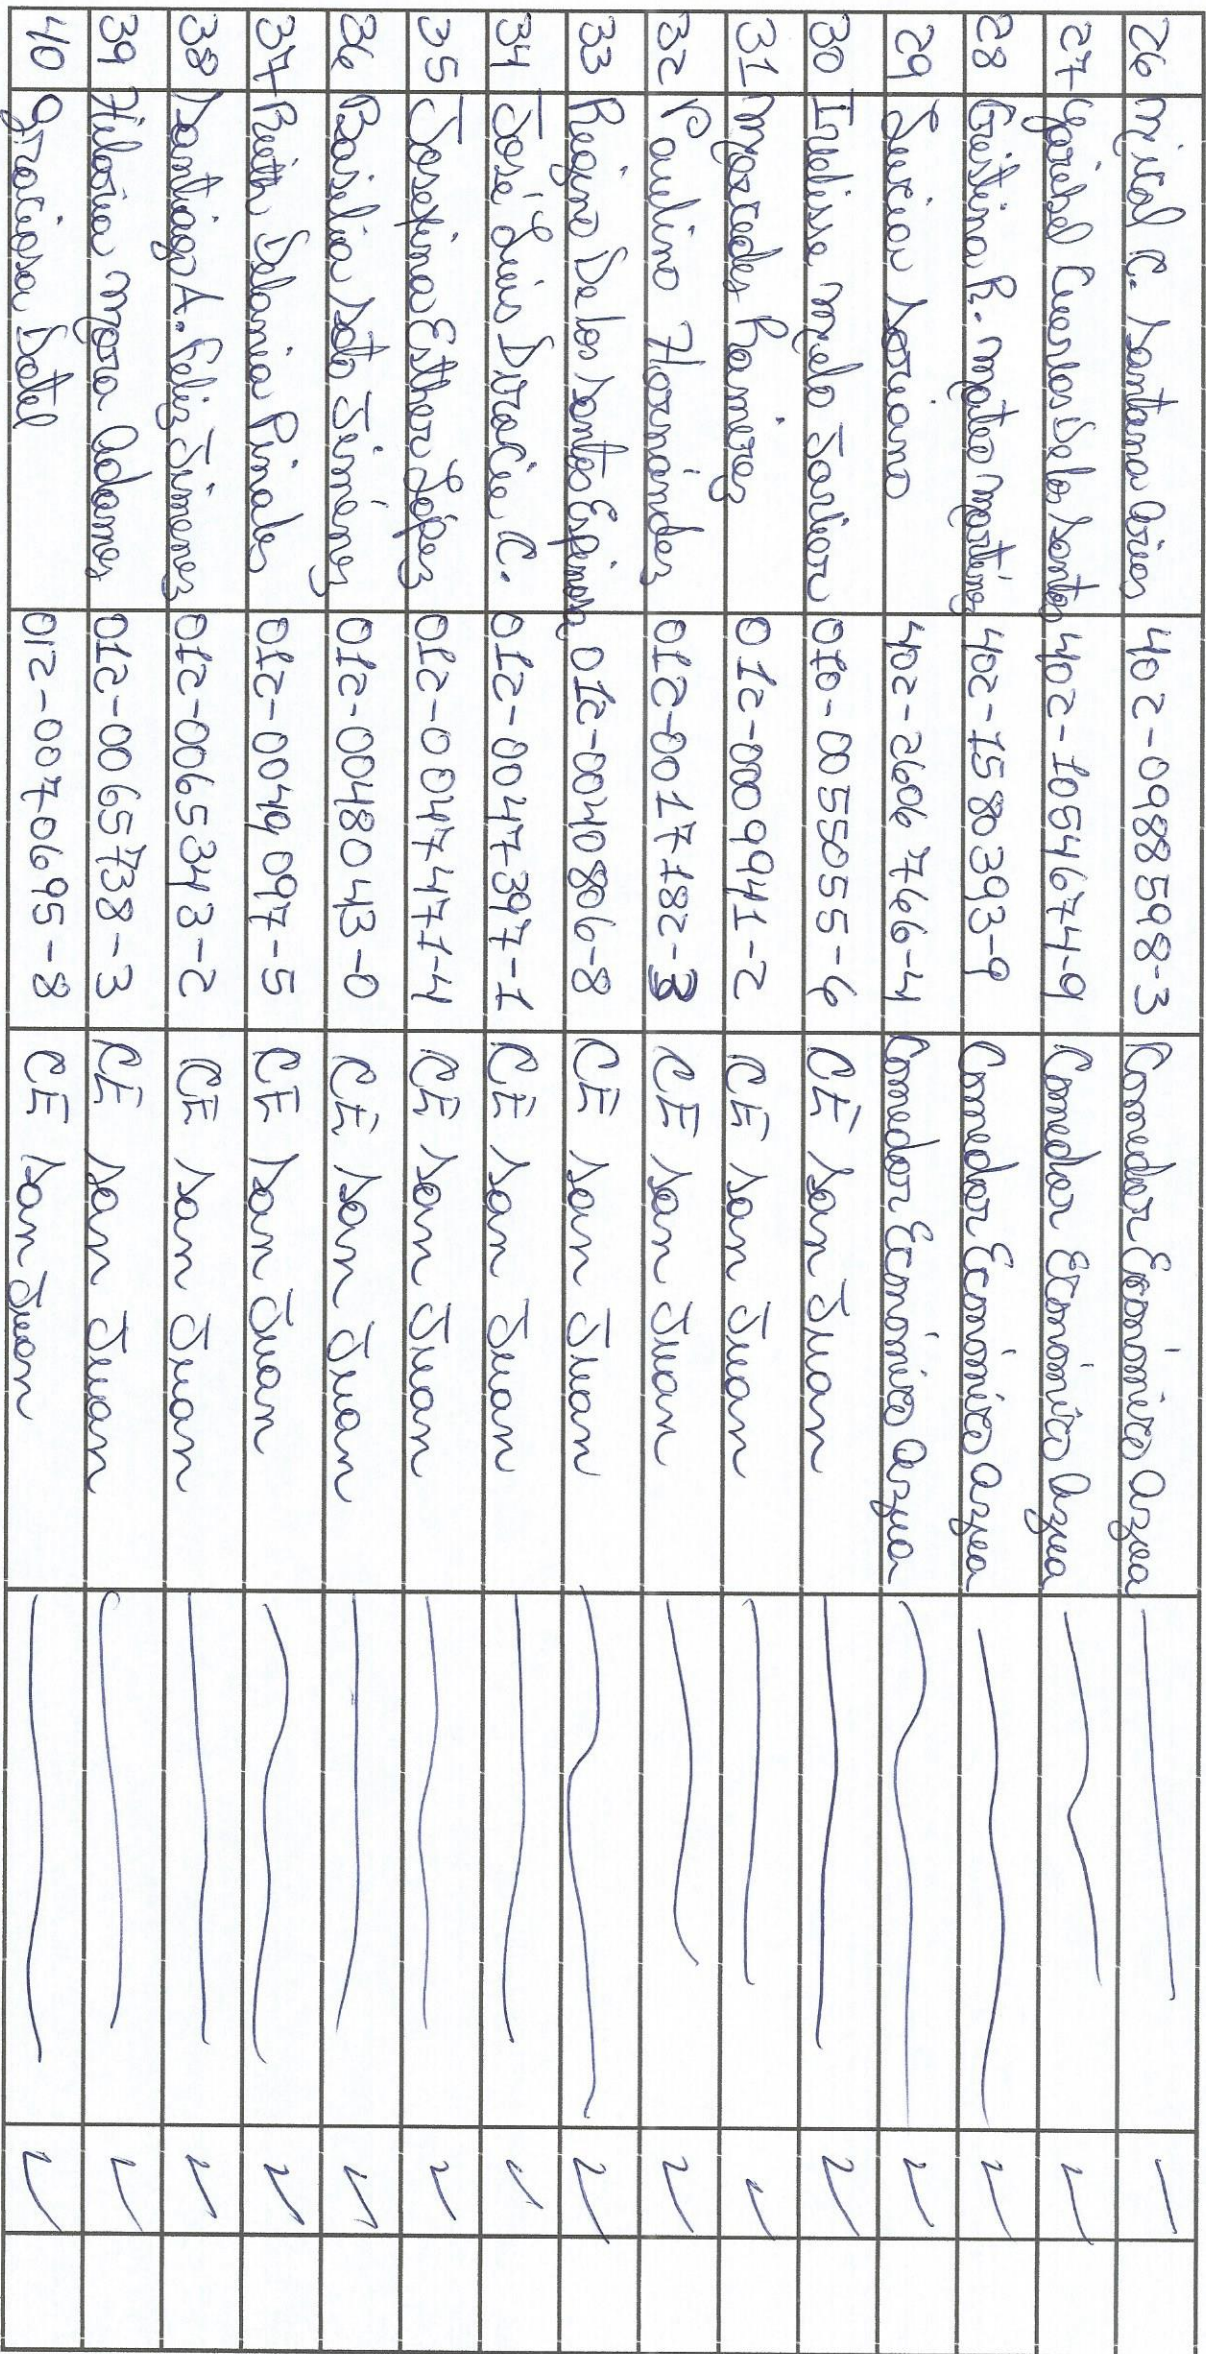 26 Mical C. Santana Arias 402-0988598-3 Comedor Económico Azua
27 Yaribel Cuevas De los Santos 402-1054674-9 Comedor Económico Azua
28 Cristina R. Mateo Martínez 402-1580393-9 Comedor Económico Azua
29 Soriano 402-2606766-4 Comedor Económico Azua
30 Melo 010-0055055-6 CE San Juan
31 Mercedes Ramírez 012-0009941-2 CE San Juan
32 Paulino Hernández 012-0017182-3 CE San Juan
33 Regino De los Santos Espinosa 012-0040806-8 CE San Juan
34 José Luis C. 012-0047397-1 CE San Juan
35 Josefina Esther López 012-0047471-4 CE San Juan
36 Basilia Soto Jiménez 012-0048043-0 CE San Juan
37 Ruth Delania Pinales 012-0049097-5 CE San Juan
38 Santiago A. Feliz Jimenez 012-0065343-2 CE San Juan
39 Hilaria Mora Adames 012-0065738-3 CE San Juan
40 Graciosa Batel 012-0070695-8 CE San Juan